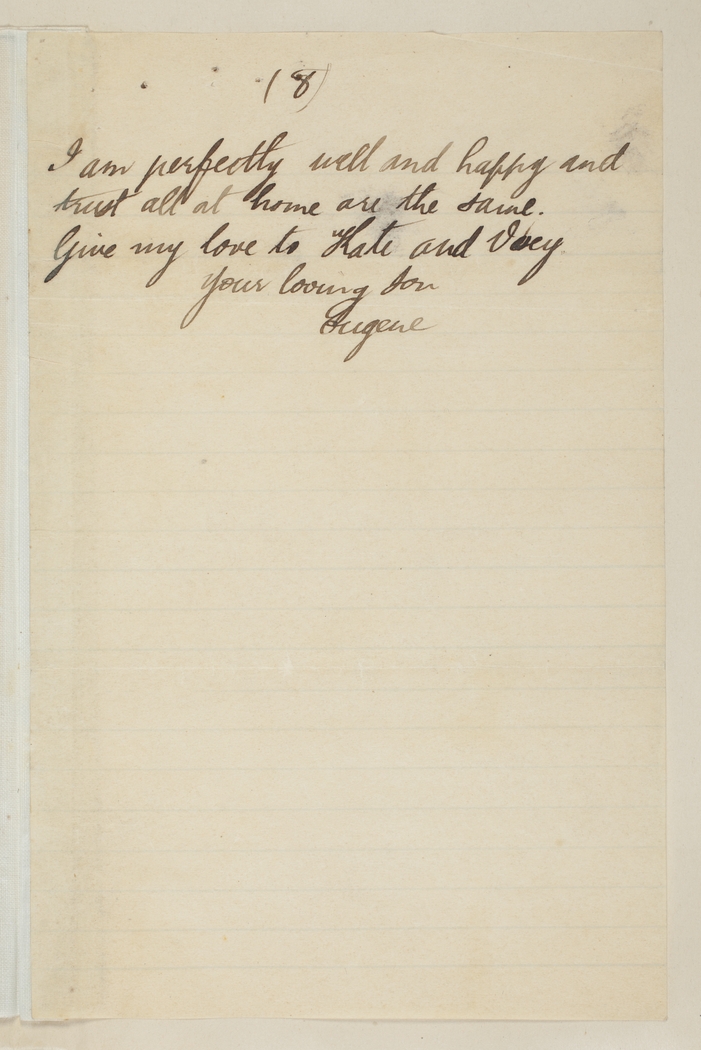 (8)
I am perfectly well and happy and
trust all at home are the same.
Give my love to Kate and
Your loving son
Eugene